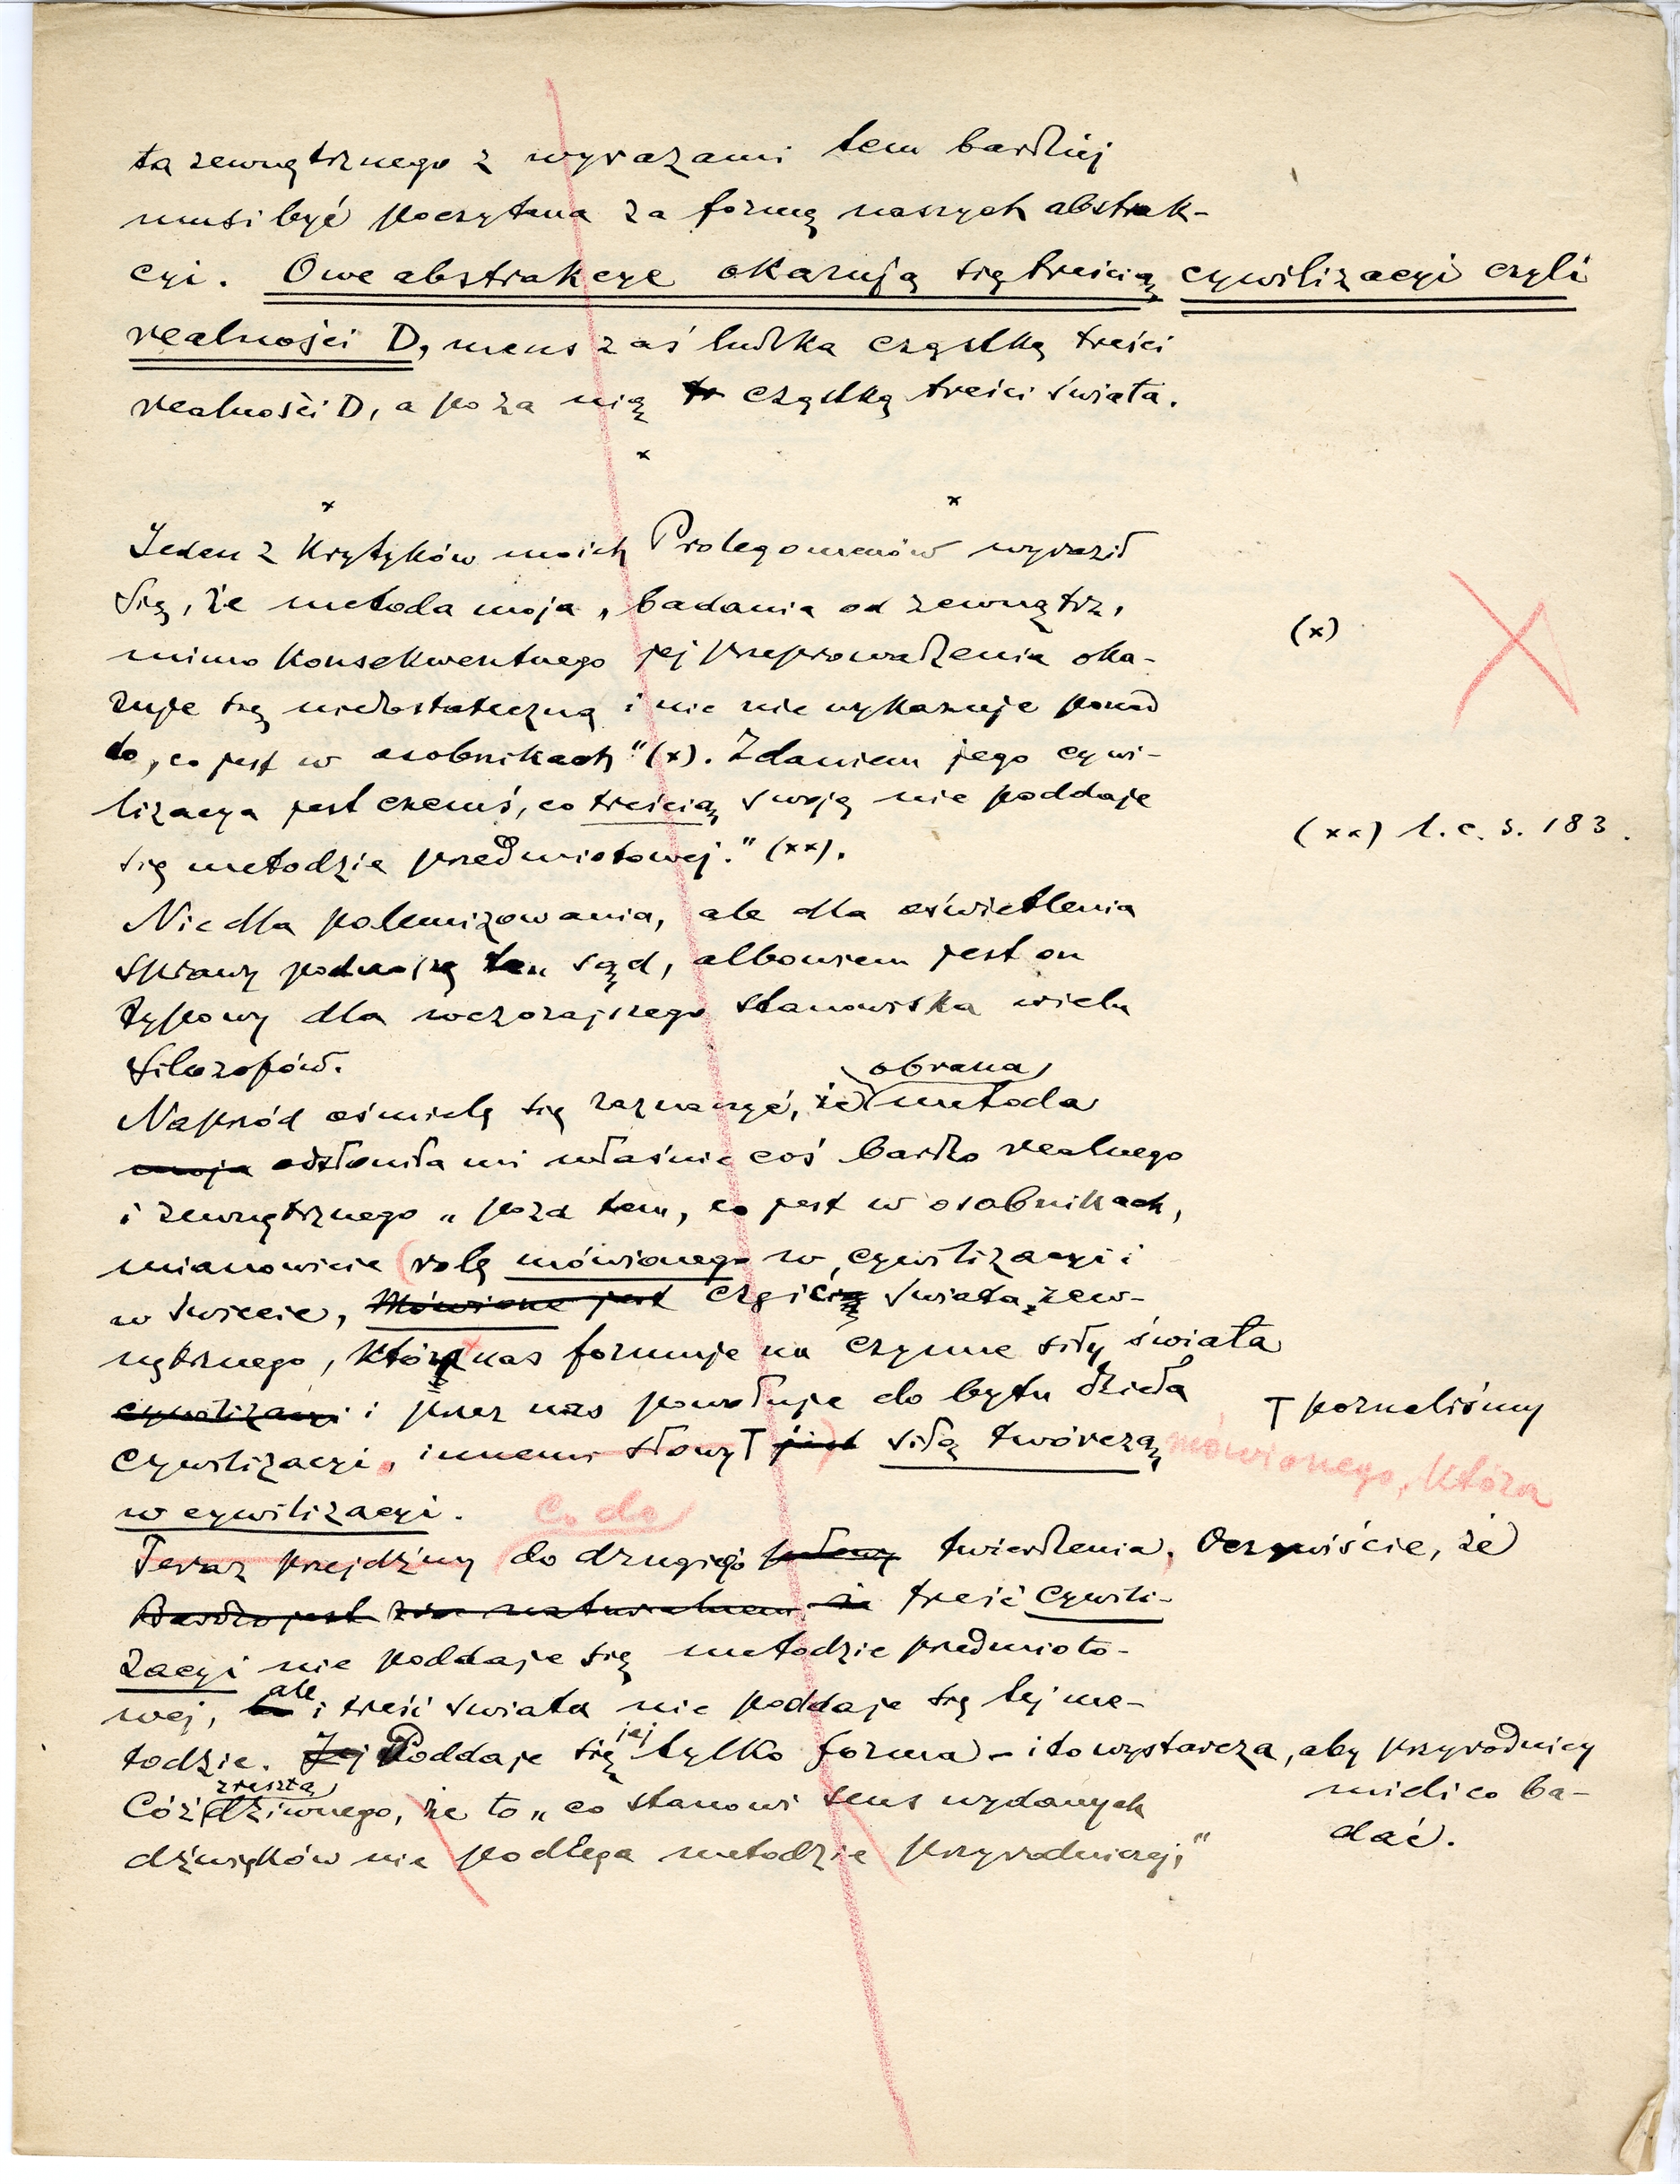 ta zewnętrznego z wyrazami tem bardziej
musi być poczytana za formę naszych abstrak-
cyi. Owe abstrakcye okazują się treścią cywilizacyi czyli
realności D, mens zaś ludzka cząstką treści
realności D, a poza nią cząstką treści świata.
x
x x
Jeden z krytyków moich Prolegomenów wyraził
się, że metoda moja „badania od zewnątrz,
mimo konsekwentnego jej przeprowadzenia oka-
zuje się niedostateczną i nic nie wykazuje ponad
to, co jest w osobnikach" (x). Zdaniem jego cywi-
lizacya jest czemś, co treścią swoją nie poddaje
się metodzie przedmiotowej." (xx).
(x)
(xx) l. c. s. 183.
Nie dla polemizowania, ale dla oświetlenia
sprawy podnoszę ten sąd, albowiem jest on
typowy dla wczorajszego stanowiska wielu
filozofów.
obrana
Naprzód ośmielę się zaznaczyć, że metoda
moja odsłoniła mi właśnie coś bardzo realnego
i zewnętrznego „poza tem, co jest w osobnikach,
mianowicie rolę mówionego w cywilizacyi i
w świecie, Mówione jest częścią świata zew-
nętrznego, która nas formuje na czynne siły świata
cywilizacyi i przez nas powołuje do bytu dzieła
T poznaliśmy
cywilizacyi, innemi słowy T jest siłą twórczą mówionego, która
w cywilizacyi.
Co do
Teraz przejdźmy do drugiego twierdzenia, Oczywiście, że
Bardzo jest naturalnem że treść cywili-
zacyi nie poddaje się metodzie przedmioto-
ale
wej, i treść świata nie poddaje się tej me-
jej
todzie. Jej Poddaje się tylko forma – i to wystarcza, aby przyrodnicy
mieli co ba-
dać.
zresztą
Cóż dziwnego, że to „co stanowi sens wydanych
dźwięków nie podlega metodzie przyrodniczej,"